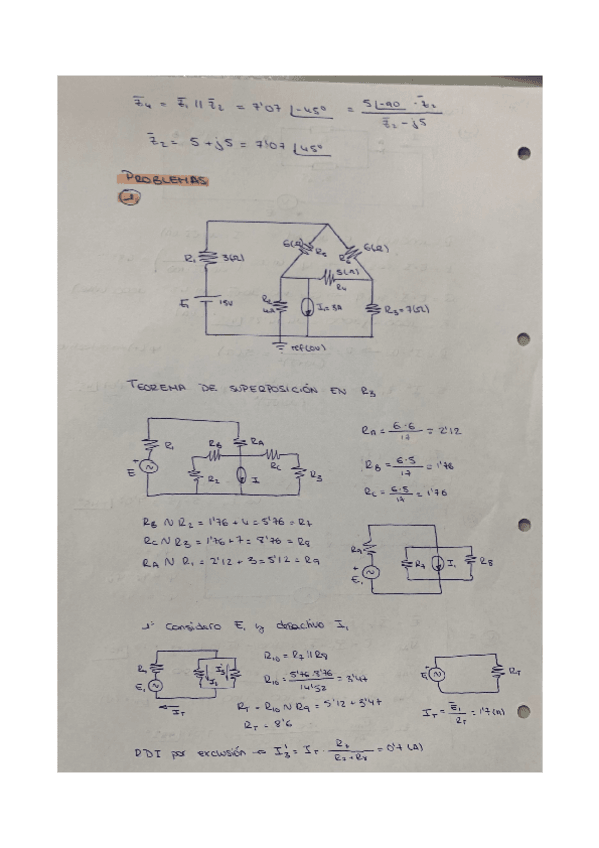 Z̄4 = Z̄1 || Z̄2 = 7'07 ∠-45° = 5∠-90 · Z̄2 / Z̄2 - j5
Z̄2 = 5 + j5 = 7'07 ∠45°
PROBLEMAS
1
6(Ω) R5 6(Ω)
R1 3(Ω) 5(Ω)
R4
E1 15V R2 I1 = 3A R3 = 7(Ω)
ref(0v)
TEOREMA DE SUPERPOSICIÓN EN R3
R1 RB RA RC
E R2 I R3
RA = 6·6 / 17 = 2'12
RB = 6·5 / 17 = 1'76
RC = 6·5 / 17 = 1'76
RB ∿ R2 = 1'76 + 4 = 5'76 = R7
RC ∿ R3 = 1'76 + 7 = 8'76 = R8
RA ∿ R1 = 2'12 + 3 = 5'12 = R9
R9 R7 I1 R8
E1
1º Considero E1 y desactivo I1
R9 I3'
E1
IT
R10 = R7 || R8
R10 = 5'76 · 8'76 / 14'52 = 3'47
RT = R10 ∿ R9 = 5'12 + 3'47
RT = 8'6
E1 RT
IT = E1 / RT = 1'7(A)
DDI por exclusión → I3' = IT · R7 / R7 + R8 = 0'7 (A)